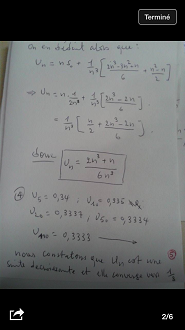 Terminé
On en déduit alors que :
Un = n fn + 1/n³ [ (2n³-3n²+n)/6 + (n²-n)/2 ]
=> Un = n . 1/2n³ + 1/n³ [ (2n³-2n)/6 ]
= 1/n³ [ n/2 + (2n³-2n)/6 ]
donc Un = (2n²+n)/6n³
④ U5 = 0,34 , U10 = 0,335
U20 = 0,3337 , U50 = 0,3334
U100 = 0,3333
nous constatons que Un est une ⑤
suite décroissante et elle converge vers 1/3
2/6